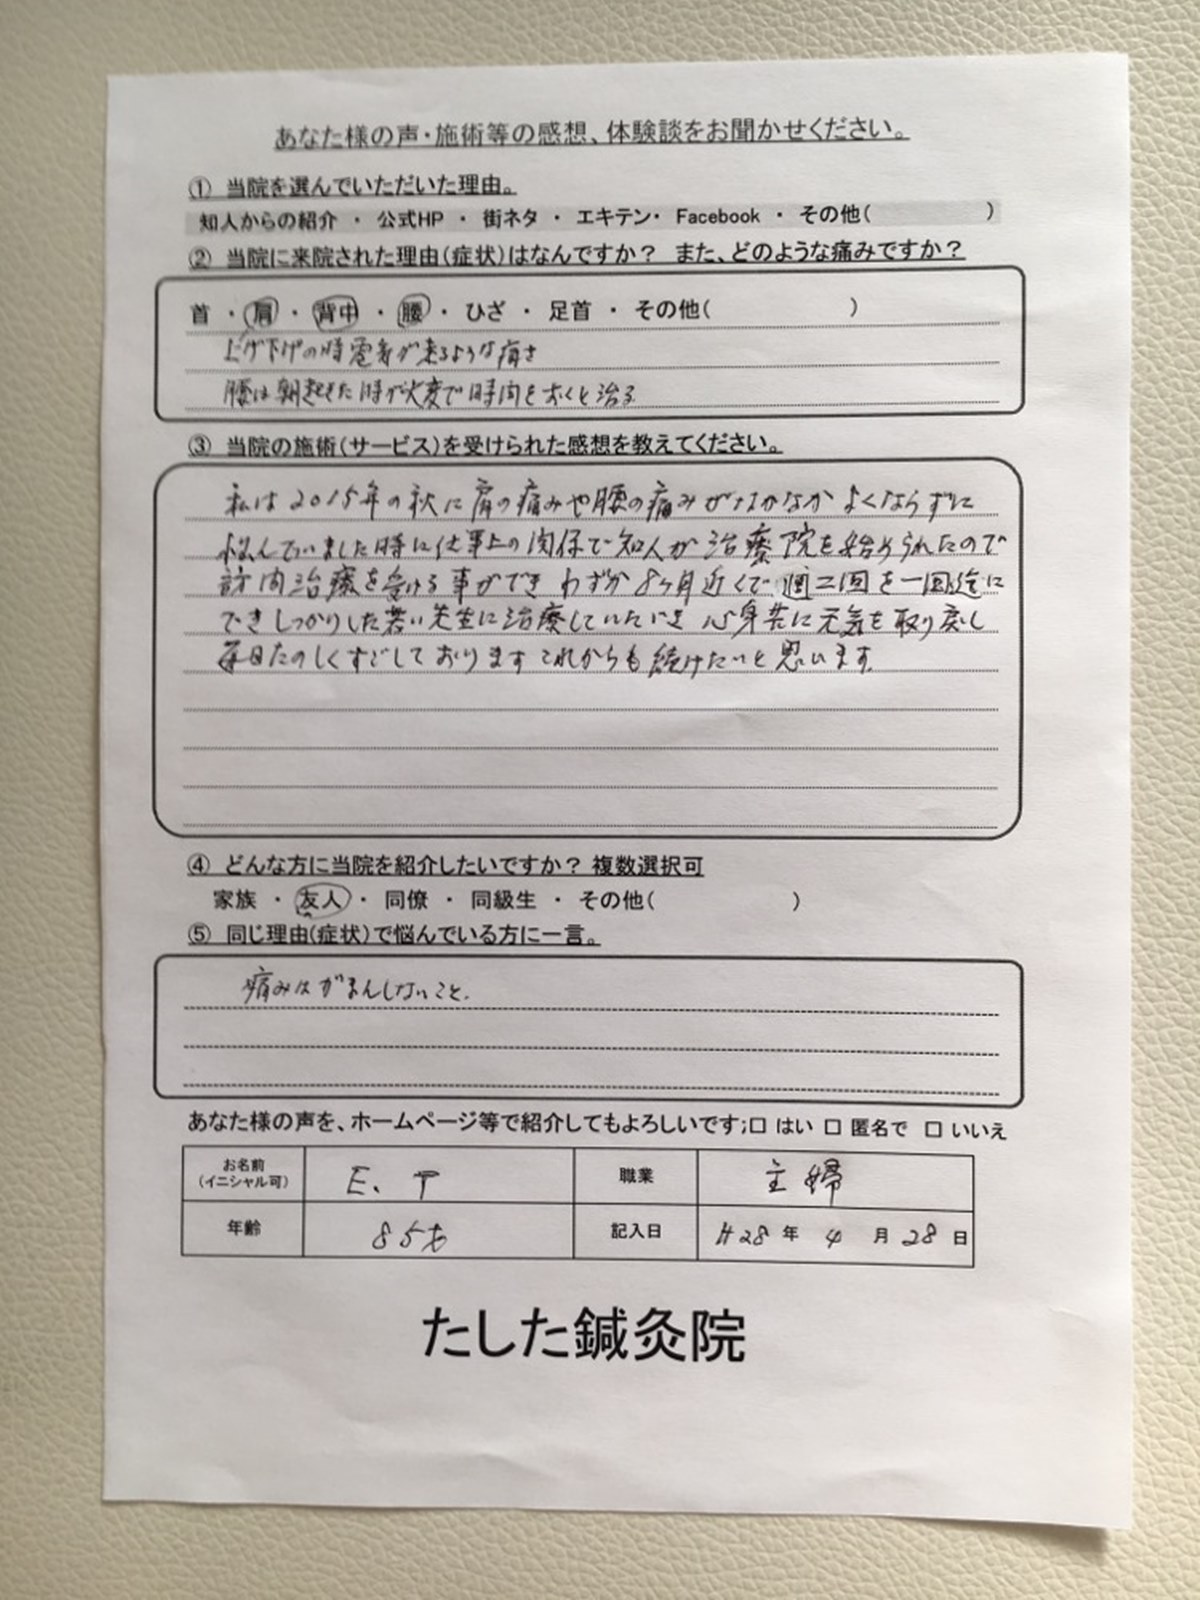 あなた様の声・施術等の感想、体験談をお聞かせください。
① 当院を選んでいただいた理由。
知人からの紹介 ・ 公式HP ・ 街ネタ ・ エキテン・ Facebook ・ その他( )
② 当院に来院された理由(症状)はなんですか? また、どのような痛みですか?
首 ・ 肩 ・ 背中 ・ 腰 ・ ひざ ・ 足首 ・ その他( )
上げ下げの時電気が来るような痛さ
腰は朝起きた時が大変で時間をおくと治る
③ 当院の施術(サービス)を受けられた感想を教えてください。
私は2015年の秋に肩の痛みや腰の痛みがなかなかよくならずに
悩んでいました時に仕事上の関係で知人が治療院を始められたので
訪問治療を受ける事ができ わずか8ヶ月近くで 週二回を一回迄に
でき しっかりした若い先生に治療していただき 心身共に元気を取り戻し
毎日たのしくすごしております これからも続けたいと思います。
④ どんな方に当院を紹介したいですか? 複数選択可
家族 ・ 友人 ・ 同僚 ・ 同級生 ・ その他( )
⑤ 同じ理由(症状)で悩んでいる方に一言。
痛みはがまんしないこと。
あなた様の声を、ホームページ等で紹介してもよろしいです;□ はい □ 匿名で □ いいえ
お名前
(イニシャル可) E. T 職業 主婦
年齢 85才 記入日 H28 年 4 月 28 日
たした鍼灸院